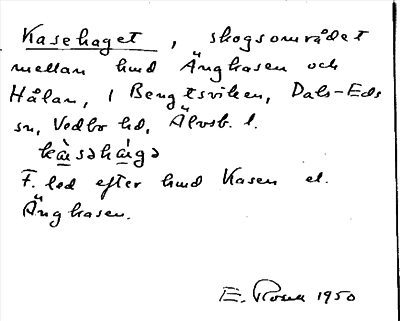 Kasehaget, skogsområdet
mellan hmd Ängkasen och
Hålan, i Bengtsviken, Dals-Eds
sn, Vedbo hd, Älvsb. l.
kàsəhá̱gə
F. led efter hmd Kasen el.
Ängkasen.
E. Rosell 1950